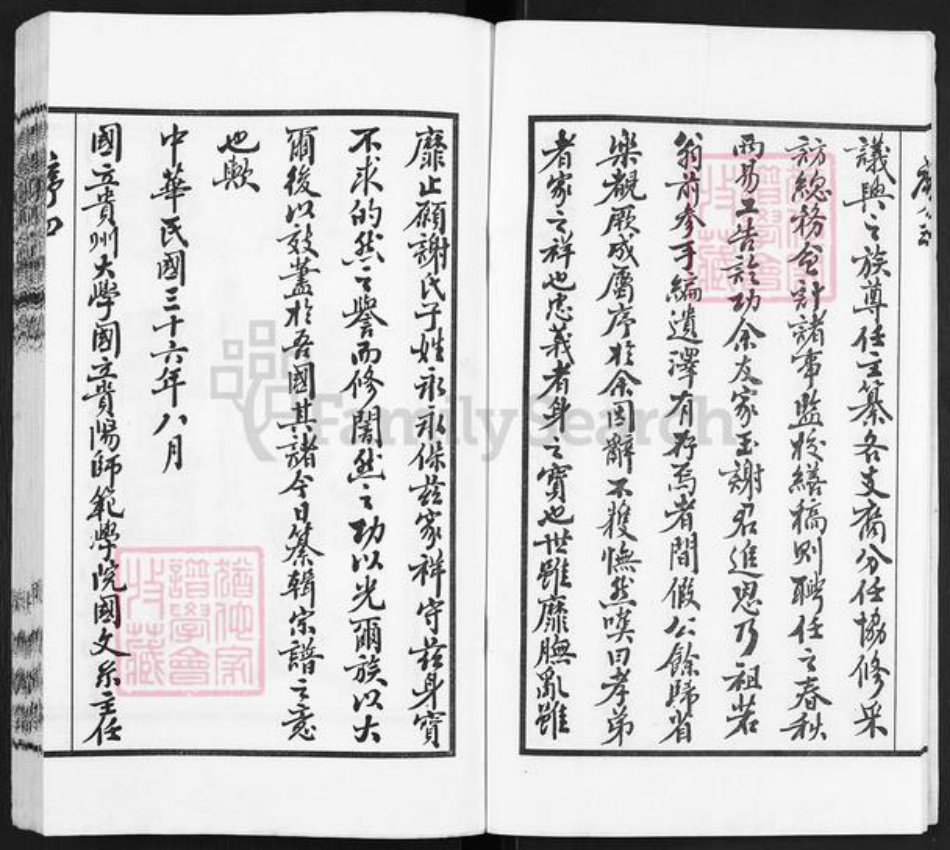 議興之族尊任主纂各支裔分任協修采
訪總務會計諸事監校繕稿則聘任之春秋
兩易工告訖功余友家玉謝君進恩乃祖若
翁前參手編遺澤有存焉者間假公餘歸省
樂觀厥成屬序於余因辭不獲憮然嘆曰孝弟
者家之祥也忠義者身之寶也世雖靡膴亂雖
靡止願謝氏子姓永永保茲家祥守茲身寶
不求的然之譽而修闇然之功以光爾族以大
爾後以效藎於吾國其諸今日纂輯宗譜之意
也歟
中華民國三十六年八月
國立貴州大學國立貴陽師範學院國文系主任
序四
FamilySearch
猶他家
譜學會
收藏
猶他家
譜學會
收藏